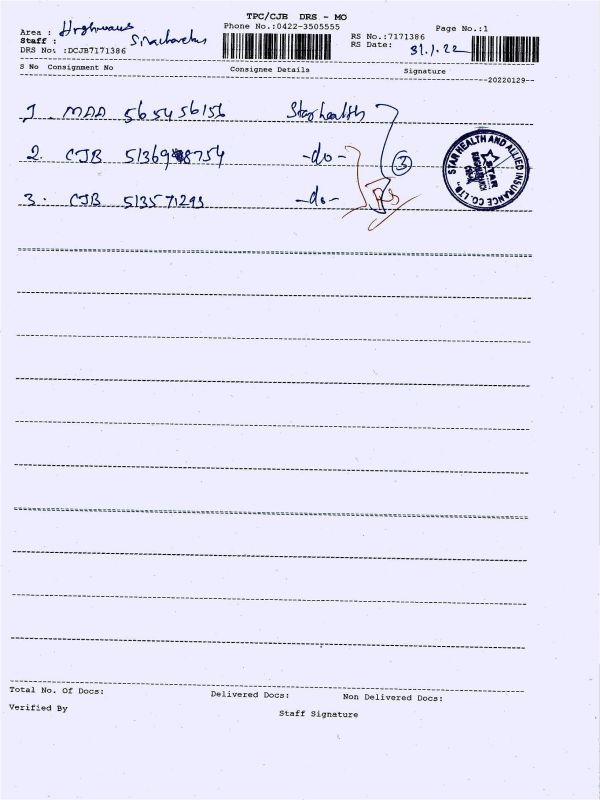 TPC/CJB DRS - MO
Area : Highways
Phone No.:0422-3505555
Page No.:1
Staff :
RS No.:7171386
DRS No :DCJB7171386
RS Date: 31.1.22
S No Consignment No Consignee Details Signature
--20220129--
1. MAA 565456156 Starhealth
2. CJB 51369 8754 -do-
3
3. CJB 513571293 -do-
STAR HEALTH AND ALLIED INSURANCE CO. LTD.
STAR
Total No. Of Docs: Delivered Docs: Non Delivered Docs:
Verified By Staff Signature